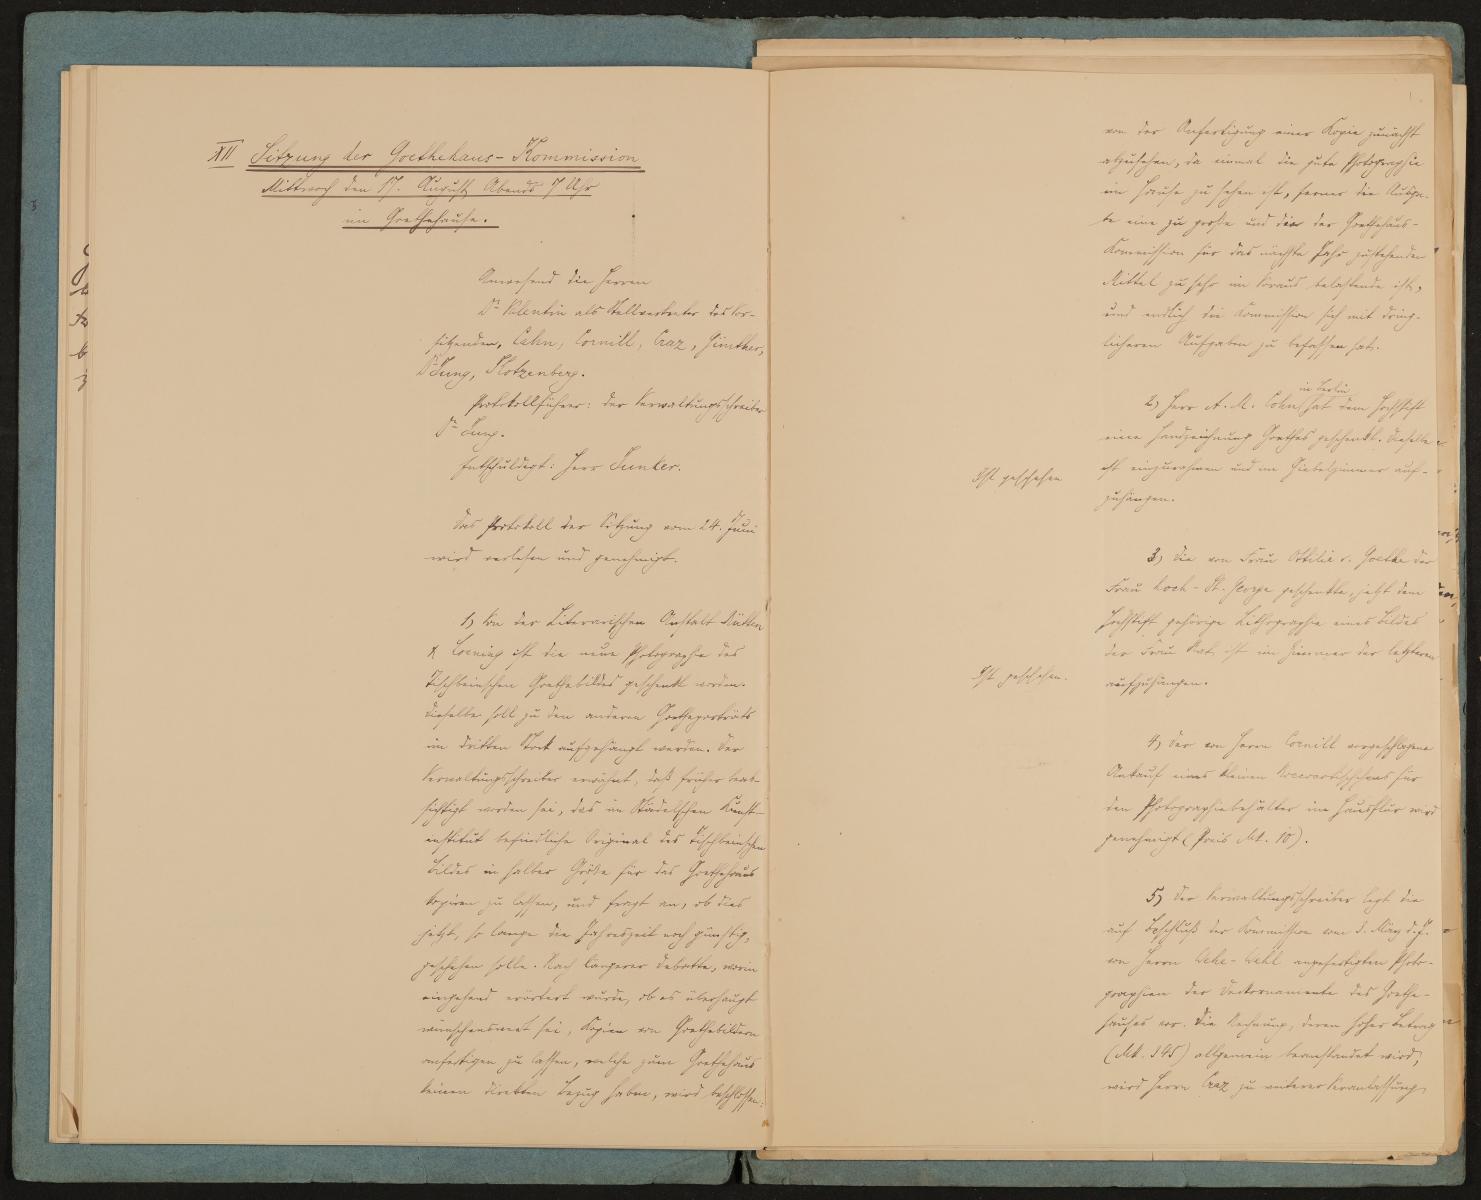 XII Sitzung der Goethehaus-Kommission
Mittwoch den 17. August Abends 7 Uhr
im Goethehause.
Anwesend die Herren
Dr Valentin als Stellvertreter des Vor-
sitzenden, Cahn, Cornill, Craz, Günther,
Dr Jung, Klotzenberg.
Protokollführer: der Verwaltungsschreiber
Dr Jung.
Entschuldigt: Herr Junker.
Das Protokoll der Sitzung vom 24. Juni
wird verlesen und genehmigt.
1) Von der Literarischen Anstalt Rütten
& Loening ist die neue Photographie des
Tischbeinschen Goethebildes geschenkt worden.
Dieselbe soll zu den anderen Goetheporträts
im dritten Stock aufgehängt werden. Der
Verwaltungsschreiber erwähnt, daß früher beab-
sichtigt worden sei, das im Städelschen Kunst-
institut befindliche Original des Tischbeinschen
Bildes in halber Größe für das Goethehaus
kopiren zu lassen, und fragt an, ob dies
jetzt, so lange die Jahreszeit noch günstig,
geschehen solle. Nach längerer Debatte, worin
eingehend erörtert wurde, ob es überhaupt
wünschenswert sei, Kopien von Goethebildern
anfertigen zu lassen, welche zum Goethehaus
keinen direkten Bezug haben, wird beschlossen:
von der Anfertigung einer Kopie zunächst
abzusehen, da einmal die gute Photographie
im Hause zu sehen ist, ferner die Ausga-
be eine zu große und die der Goethehaus-
Kommission für das nächste Jahr zustehenden
Mittel zu sehr im Voraus belastende ist,
und endlich die Kommission sich mit dring-
licheren Aufgaben zu befassen hat.
2) Herr A. M. Cohn in Berlin hat dem Hochstift
eine Handzeichnung Goethes geschenkt. Dieselbe
ist einzurahmen und im Giebelzimmer auf-
zuhängen.
Ist geschehen
3) Die von Frau Ottilie v. Goethe der
Frau Koch-St. George geschenkte, jetzt dem
Hochstift gehörige Lithographie eines Bildes
der Frau Rat ist im Zimmer der letzteren
aufzuhängen.
Ist geschehen.
4) Der von Herrn Cornill vorgeschlagene
Ankauf eines kleinen Roccocotischchens für
den Photographiebehälter im Hausflur wird
genehmigt (Preis Mk. 10).
5) Der Verwaltungsschreiber legt die
auf Beschluß der Kommission vom 3. May d. J.
von Herrn Weke-Wehl angefertigten Photo-
graphien der Deckornamente des Goethe-
hauses vor. Die Rechnung, deren hoher Betrag
(Mk. 345) allgemein beanstandet wird,
wird Herrn Craz zu weiterer Veranlassung